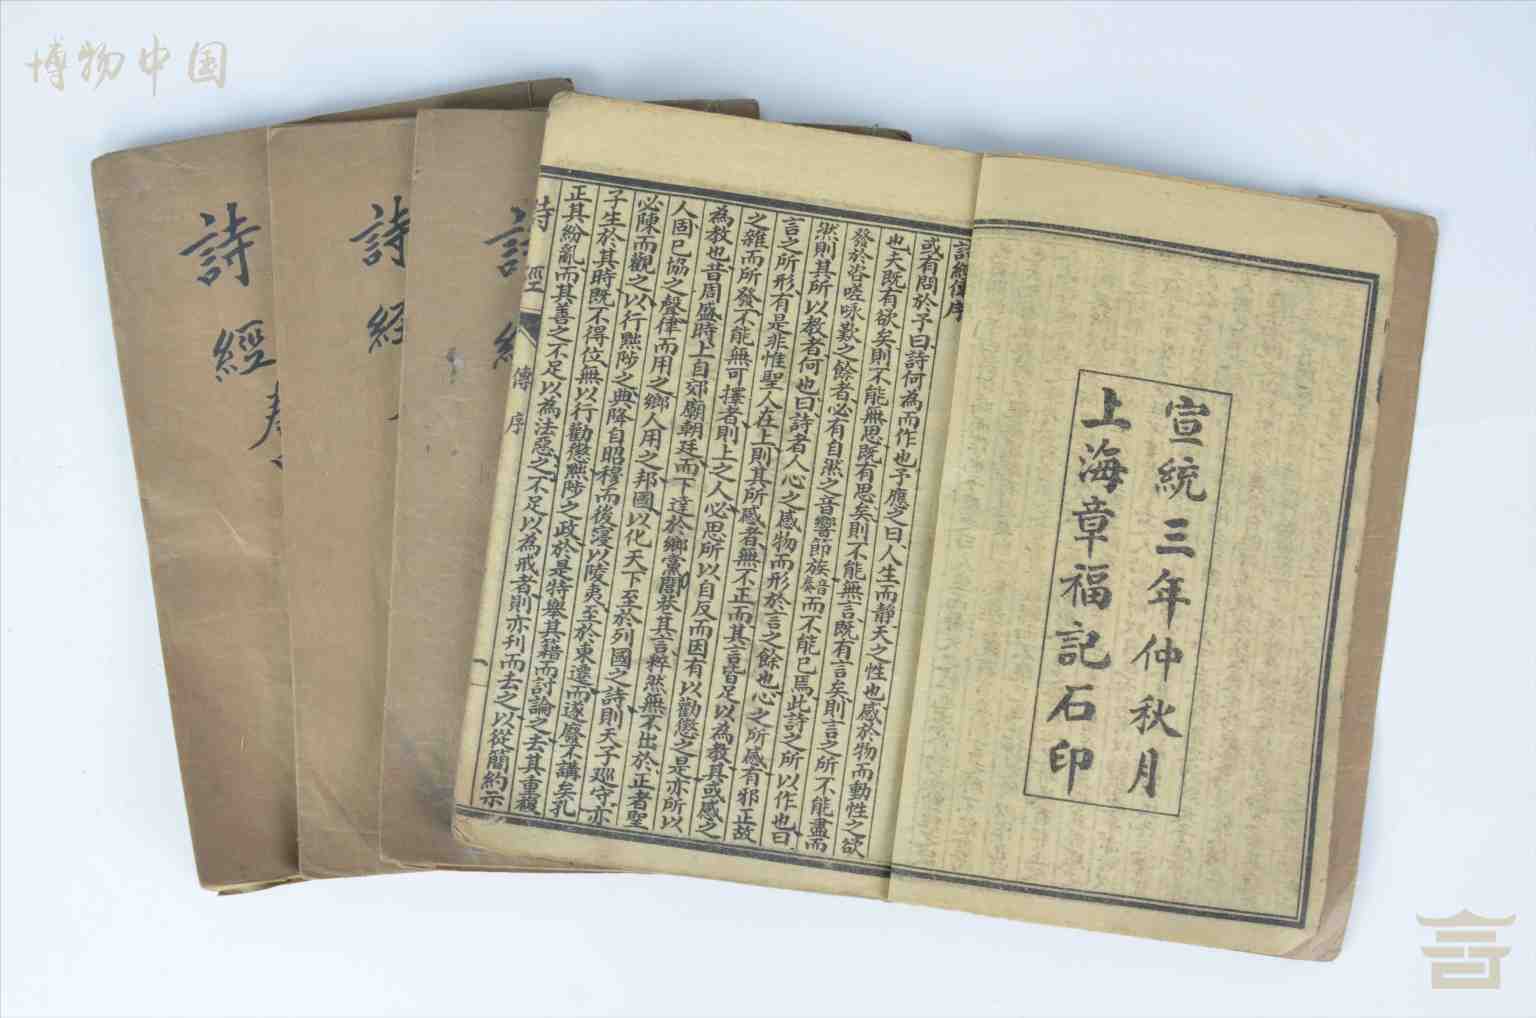 博物中国
詩經
詩經
宣統三年仲秋月
上海章福記石印
詩經傳序
或有問於予曰詩何為而作也予應之曰人生而靜天之性也感於物而動性之欲
也夫既有欲矣則不能無思既有思矣則不能無言既有言矣則言之所不能盡而
發於咨嗟咏歎之餘者必有自然之音響節族音奏而不能已焉此詩之所以作也曰
然則其所以教者何也曰詩者人心之感物而形於言之餘也心之所感有邪正故
言之所形有是非惟聖人在上則其所感者無不正而其言皆足以為教其或感之
之雜而所發不能無可擇者則上之人必思所以自反而因有以勸懲之是亦所以
為教也昔周盛時上自郊廟朝廷而下達於鄉黨閭巷其言粹然無不出於正者聖
人固已協之聲律而用之鄉人用之邦國以化天下至於列國之詩則天子巡守亦
必陳而觀之以行黜陟之典降自昭穆而後寖以陵夷至於東遷而遂廢不講矣孔
子生於其時既不得位無以行勸懲黜陟之政於是特舉其籍而討論之去其重複
正其紛亂而其善之不足以為法惡之不足以為戒者則亦刊而去之以從簡約示
詩經 傳序 一